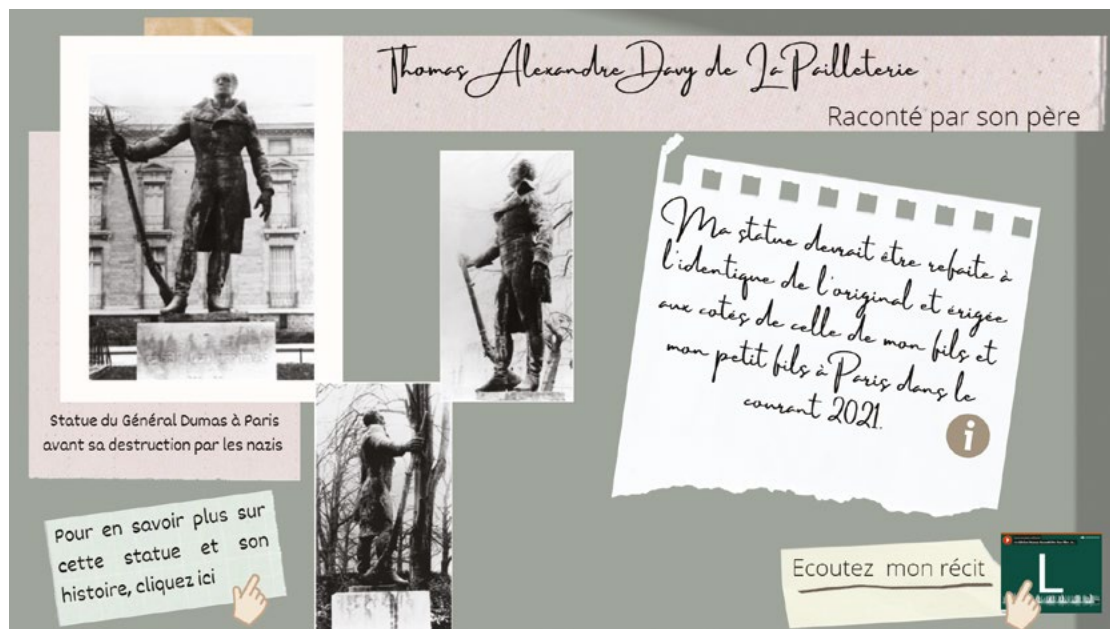 Thomas Alexandre Davy de La Pailleterie
Raconté par son père
Statue du Général Dumas à Paris
avant sa destruction par les nazis
Ma statue devrait être refaite à
l'identique de l'original et érigée
aux cotés de celle de mon fils et
mon petit fils à Paris dans le
courant 2021.
i
Pour en savoir plus sur
cette statue et son
histoire, cliquez ici
Ecoutez mon récit
L